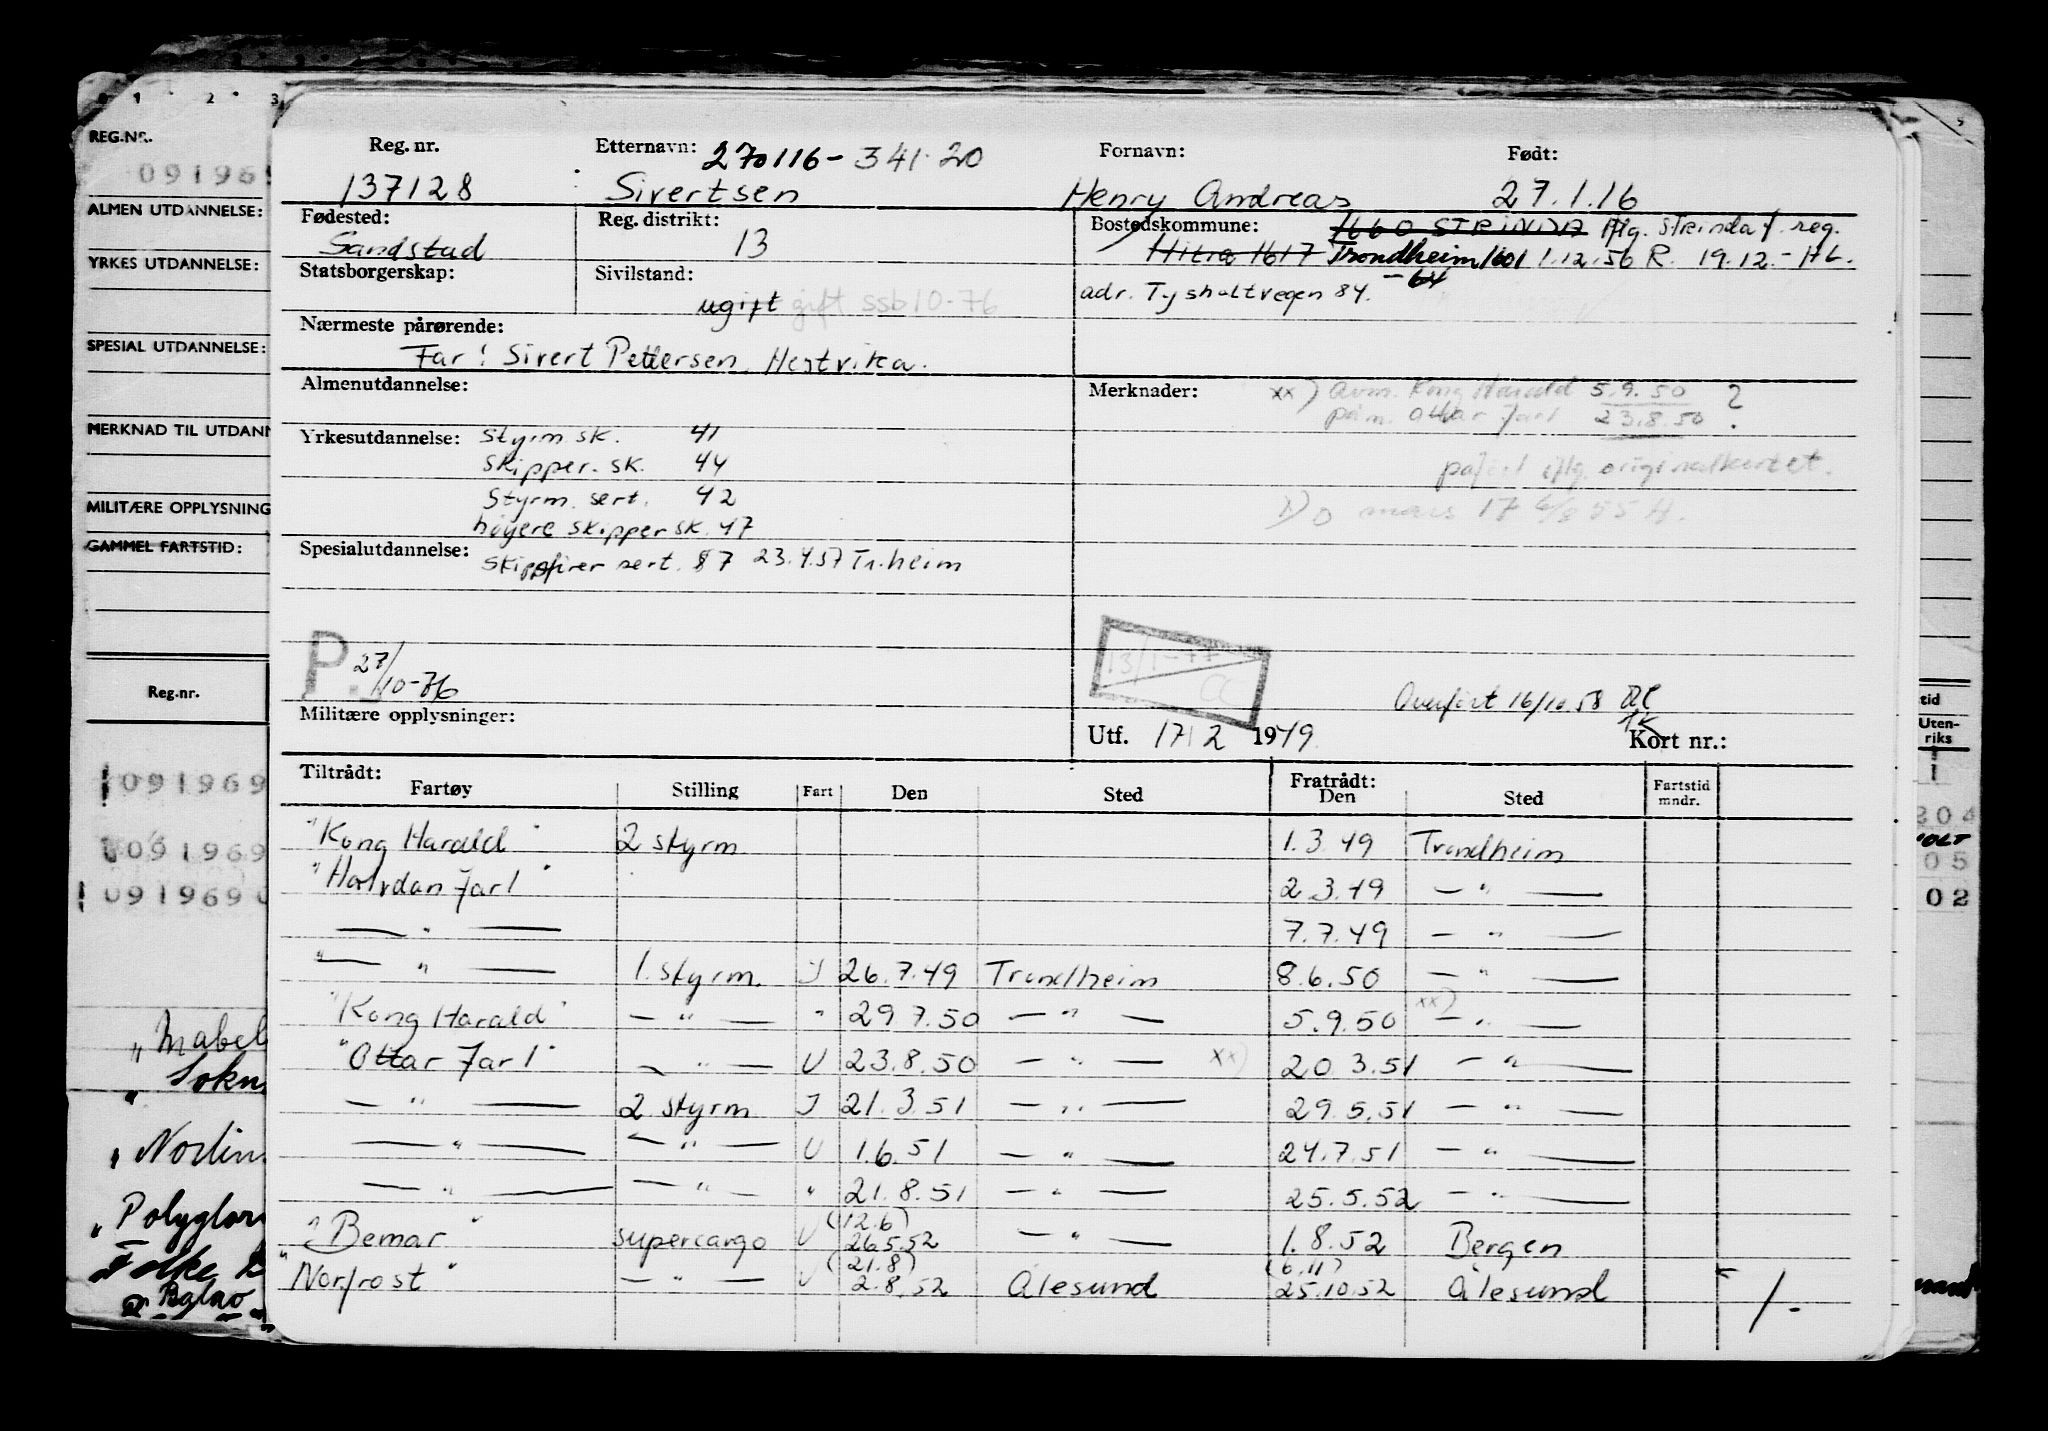 REG.NR.
091969
ALMEN UTDANNELSE:
YRKES UTDANNELSE:
SPESIAL UTDANNELSE:
MERKNAD TIL UTDANN
MILITÆRE OPPLYSNING
GAMMEL FARTSTID:
Reg.nr.
091969
091969
091969
" Mabel
" Sokn
" Norlin
" Polyglor
Falke
Reg. nr. Etternavn: 270116-341 20 Fornavn: Født:
137128 Sivertsen Henry Andreas 27.1.16
Fødested: Reg. distrikt: Bostedskommune: 1660 STRINDA iflg. Strinda f. reg.
Sandstad 13 Hitra 1617 Trondheim 1601 1.12.56 R. 19.12.- HL.
Statsborgerskap: Sivilstand: -64
ugift gift ssb10-76 adr. Tysholtvegen 84.
Nærmeste pårørende:
Far: Sivert Pettersen, Hestvika.
Almenutdannelse: Merknader: xx) Avm. Kong Harald 5.9.50 ?
påm. Ottar Jarl 23.8.50
Yrkesutdannelse: Styrm sk. 41
Skipper. sk. 44 iflg. originalkortet.
Styrm. sert. 42
høyere skipper sk. 47
Spesialutdannelse: Skipsfører sert. 87 23.4.57 Tr.heim
P. 27/10-76
13/1-77
CC
Overført 16/10 58
Militære opplysninger: Utf. 17/2 1949. Kort nr.:
Tiltrådt: Fratrådt:
Fartøy Stilling Fart Den Sted Den Sted Fartstid mndr.
"Kong Harald" 2 styrm 1.3.49 Trondheim
"Halvdan Jarl" 2.3.49 — " —
— " — 7.7.49 — " —
— " — 1. styrm. I 26.7.49 Trondheim 8.6.50 — " —
"Kong Harald" — " — " 29 7.50 — " — 5.9.50 xx) — " —
"Ottar Jarl" — " — U 23.8.50 — " — xx) 20.3.51 — " —
— " — 2 styrm I 21.3.51 — " — 29.5.51 — " —
— " — — " — U 1.6.51 — " — 24.7.51 — " —
— " — — " — " 21.8.51 — " — 25.5.52 — " —
"Bemar" supercargo U (12.6) 26.5.52 — " — 1.8.52 Bergen
"Norfrost" — " — U (21.8) 2.8.52 Ålesund (6.11) 25.10.52 Ålesund 1-
tid
Uten-
riks
204
05
02